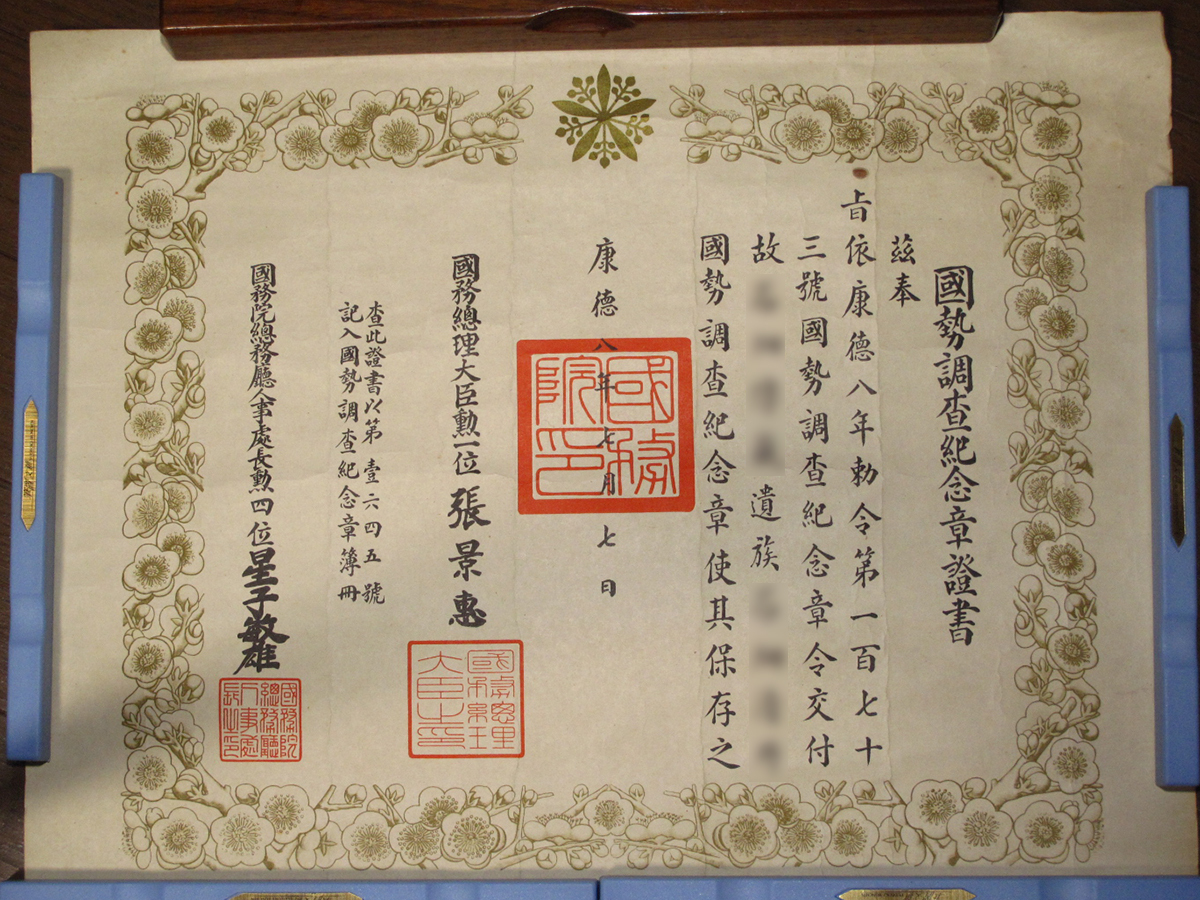 國勢調查紀念章證書
茲奉
旨依康德八年勅令第一百七十
三號國勢調查紀念章令交付
故 遺族
國勢調查紀念章使其保存之
康德八年七月七日
國務院印
國務總理大臣勳一位張景惠
國務總理大臣之印
查此證書以第壹六四五號
記入國勢調查紀念章簿冊
國務院總務廳人事處長勳四位星子敏雄
國務院總務廳人事處長之印